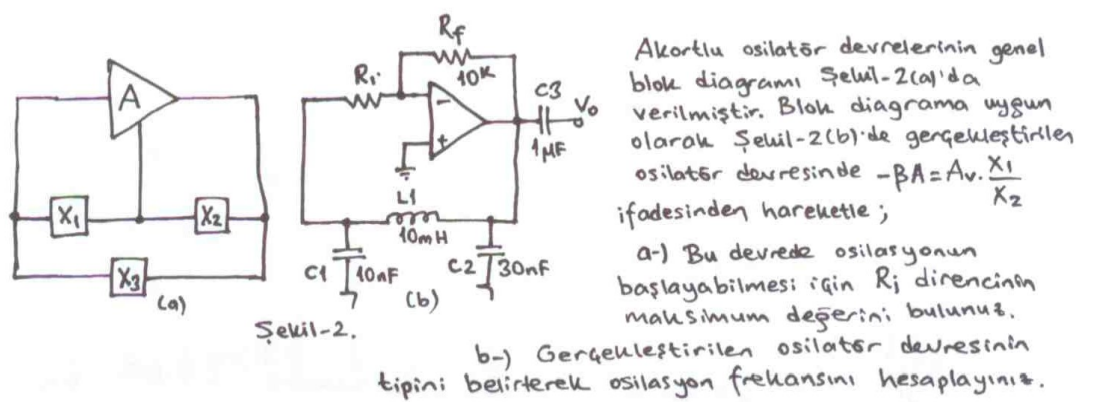 Rf
10K
Ri
A
C3
Vo
1µF
X1
X2
X3
L1
10mH
C1
10nF
C2
30nF
(a)
(b)
Şekil-2.
Akortlu osilatör devrelerinin genel
blok diagramı Şekil-2(a)'da
verilmiştir. Blok diagrama uygun
olarak Şekil-2(b)'de gerçekleştirilen
osilatör devresinde -βA = Av. X1/X2
ifadesinden hareketle ;
a-) Bu devrede osilasyonun
başlayabilmesi için Ri direncinin
maksimum değerini bulunuz.
b-) Gerçekleştirilen osilatör devresinin
tipini belirterek osilasyon frekansını hesaplayınız.